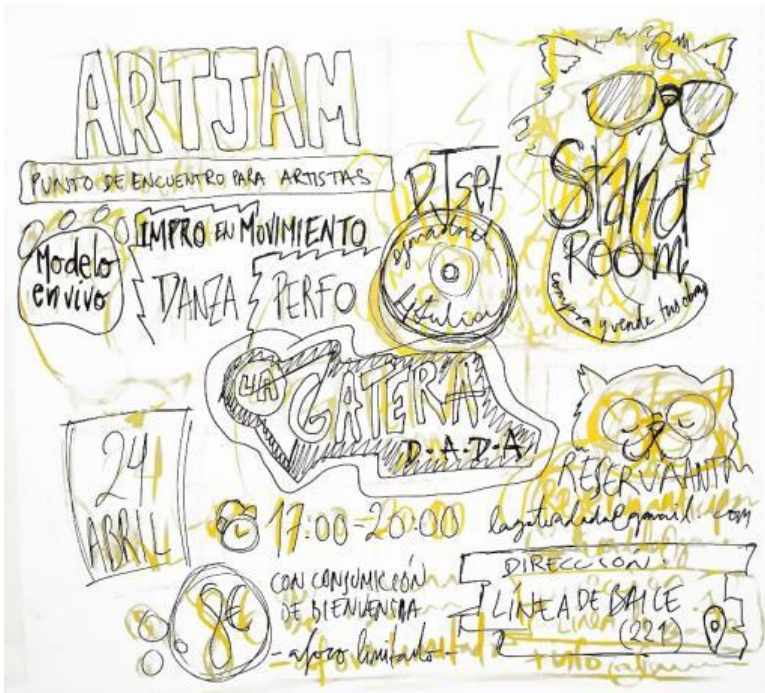 ARTJAM
PUNTO DE ENCUENTRO PARA ARTISTAS
Modelo
en vivo
IMPRO EN MOVIMIENTO
DANZA
PERFO
DJ set
Stand
ROOM
compra y vende tus obras
LA
GATERA
D·A·D·A
24
ABRIL
17:00-20:00
8€
CON CONSUMICIÓN
DE BIENVENIDA
- aforo limitado -
.com
DIRECCIÓN:
LÍNEA DE BAILE
(221)